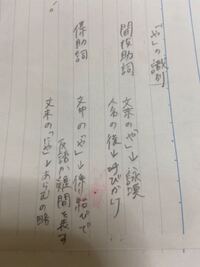 「や」の識別
間投助詞
文末の「や」→詠嘆
人名の後→呼びかけ
係助詞
文中の「や」→係り結びで
反語か疑問を表す
文末の「や」→あらむの略